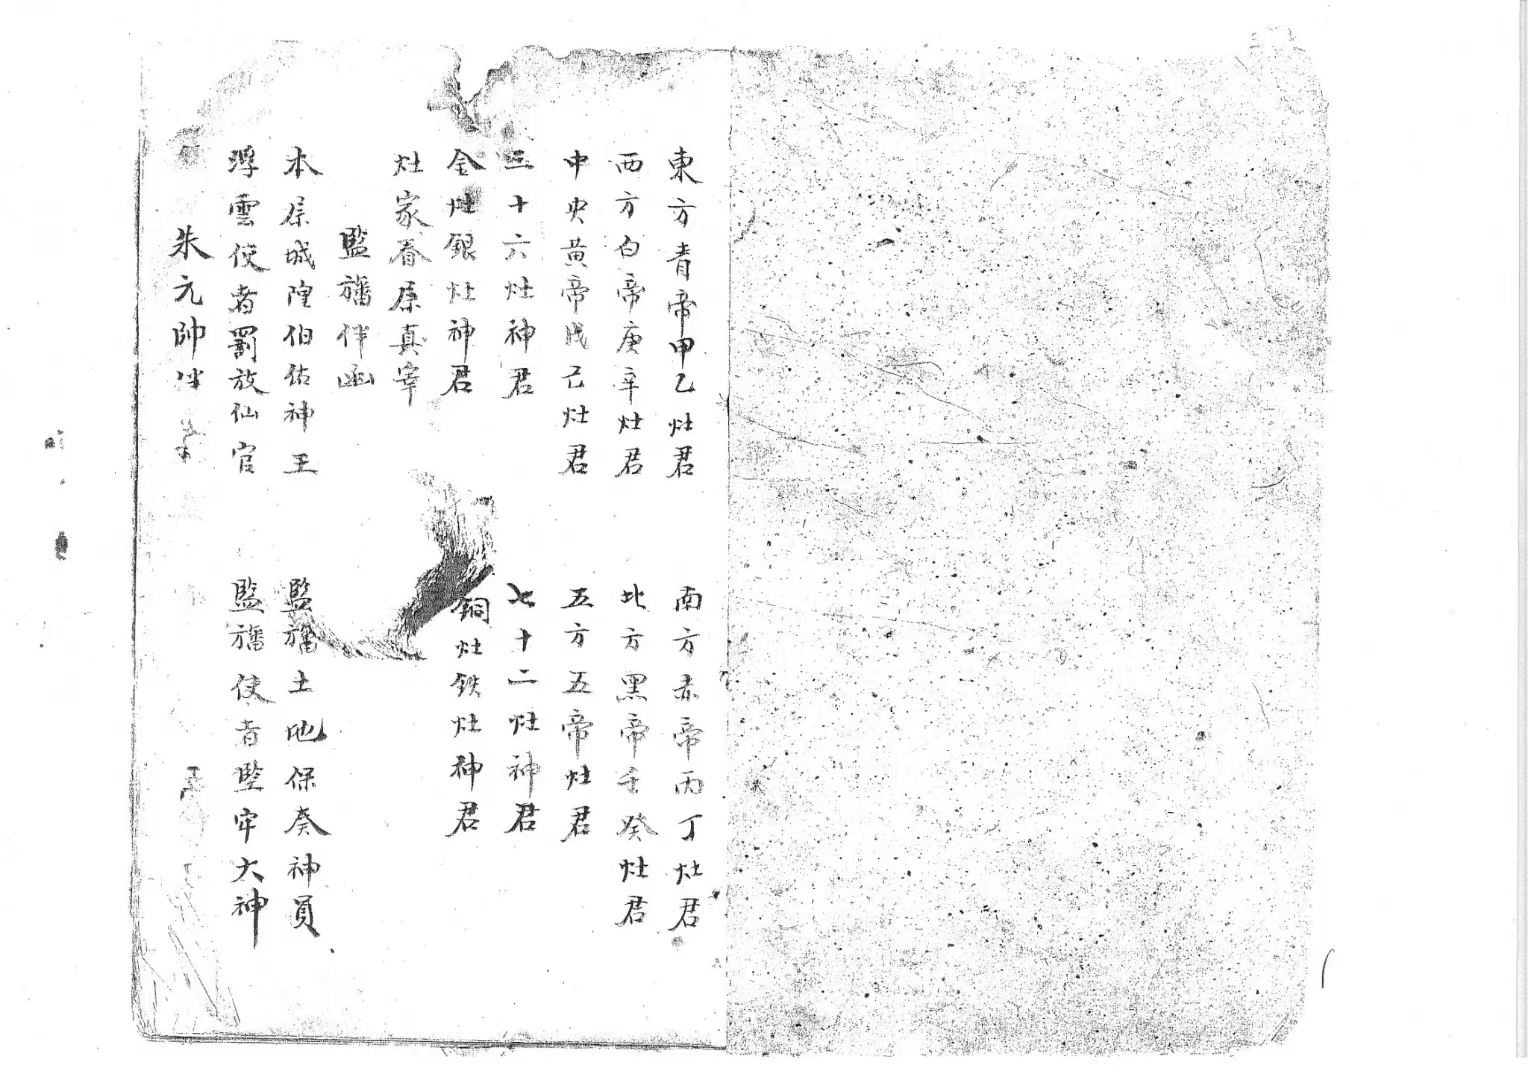 東方青帝甲乙灶君
南方赤帝丙丁灶君
西方白帝庚辛灶君
北方黑帝壬癸灶君
中央黄帝戊己灶君
五方五帝灶君
三十六灶神君
七十二灶神君
金灶銀灶神君
銅灶鉄灶神君
灶家眷属真宰
監旛伴函
本属城隍伯佑神王
監旛土地保奏神員
浮雲使者罰放仙官
監旛使者監牢大神
朱元帥伴